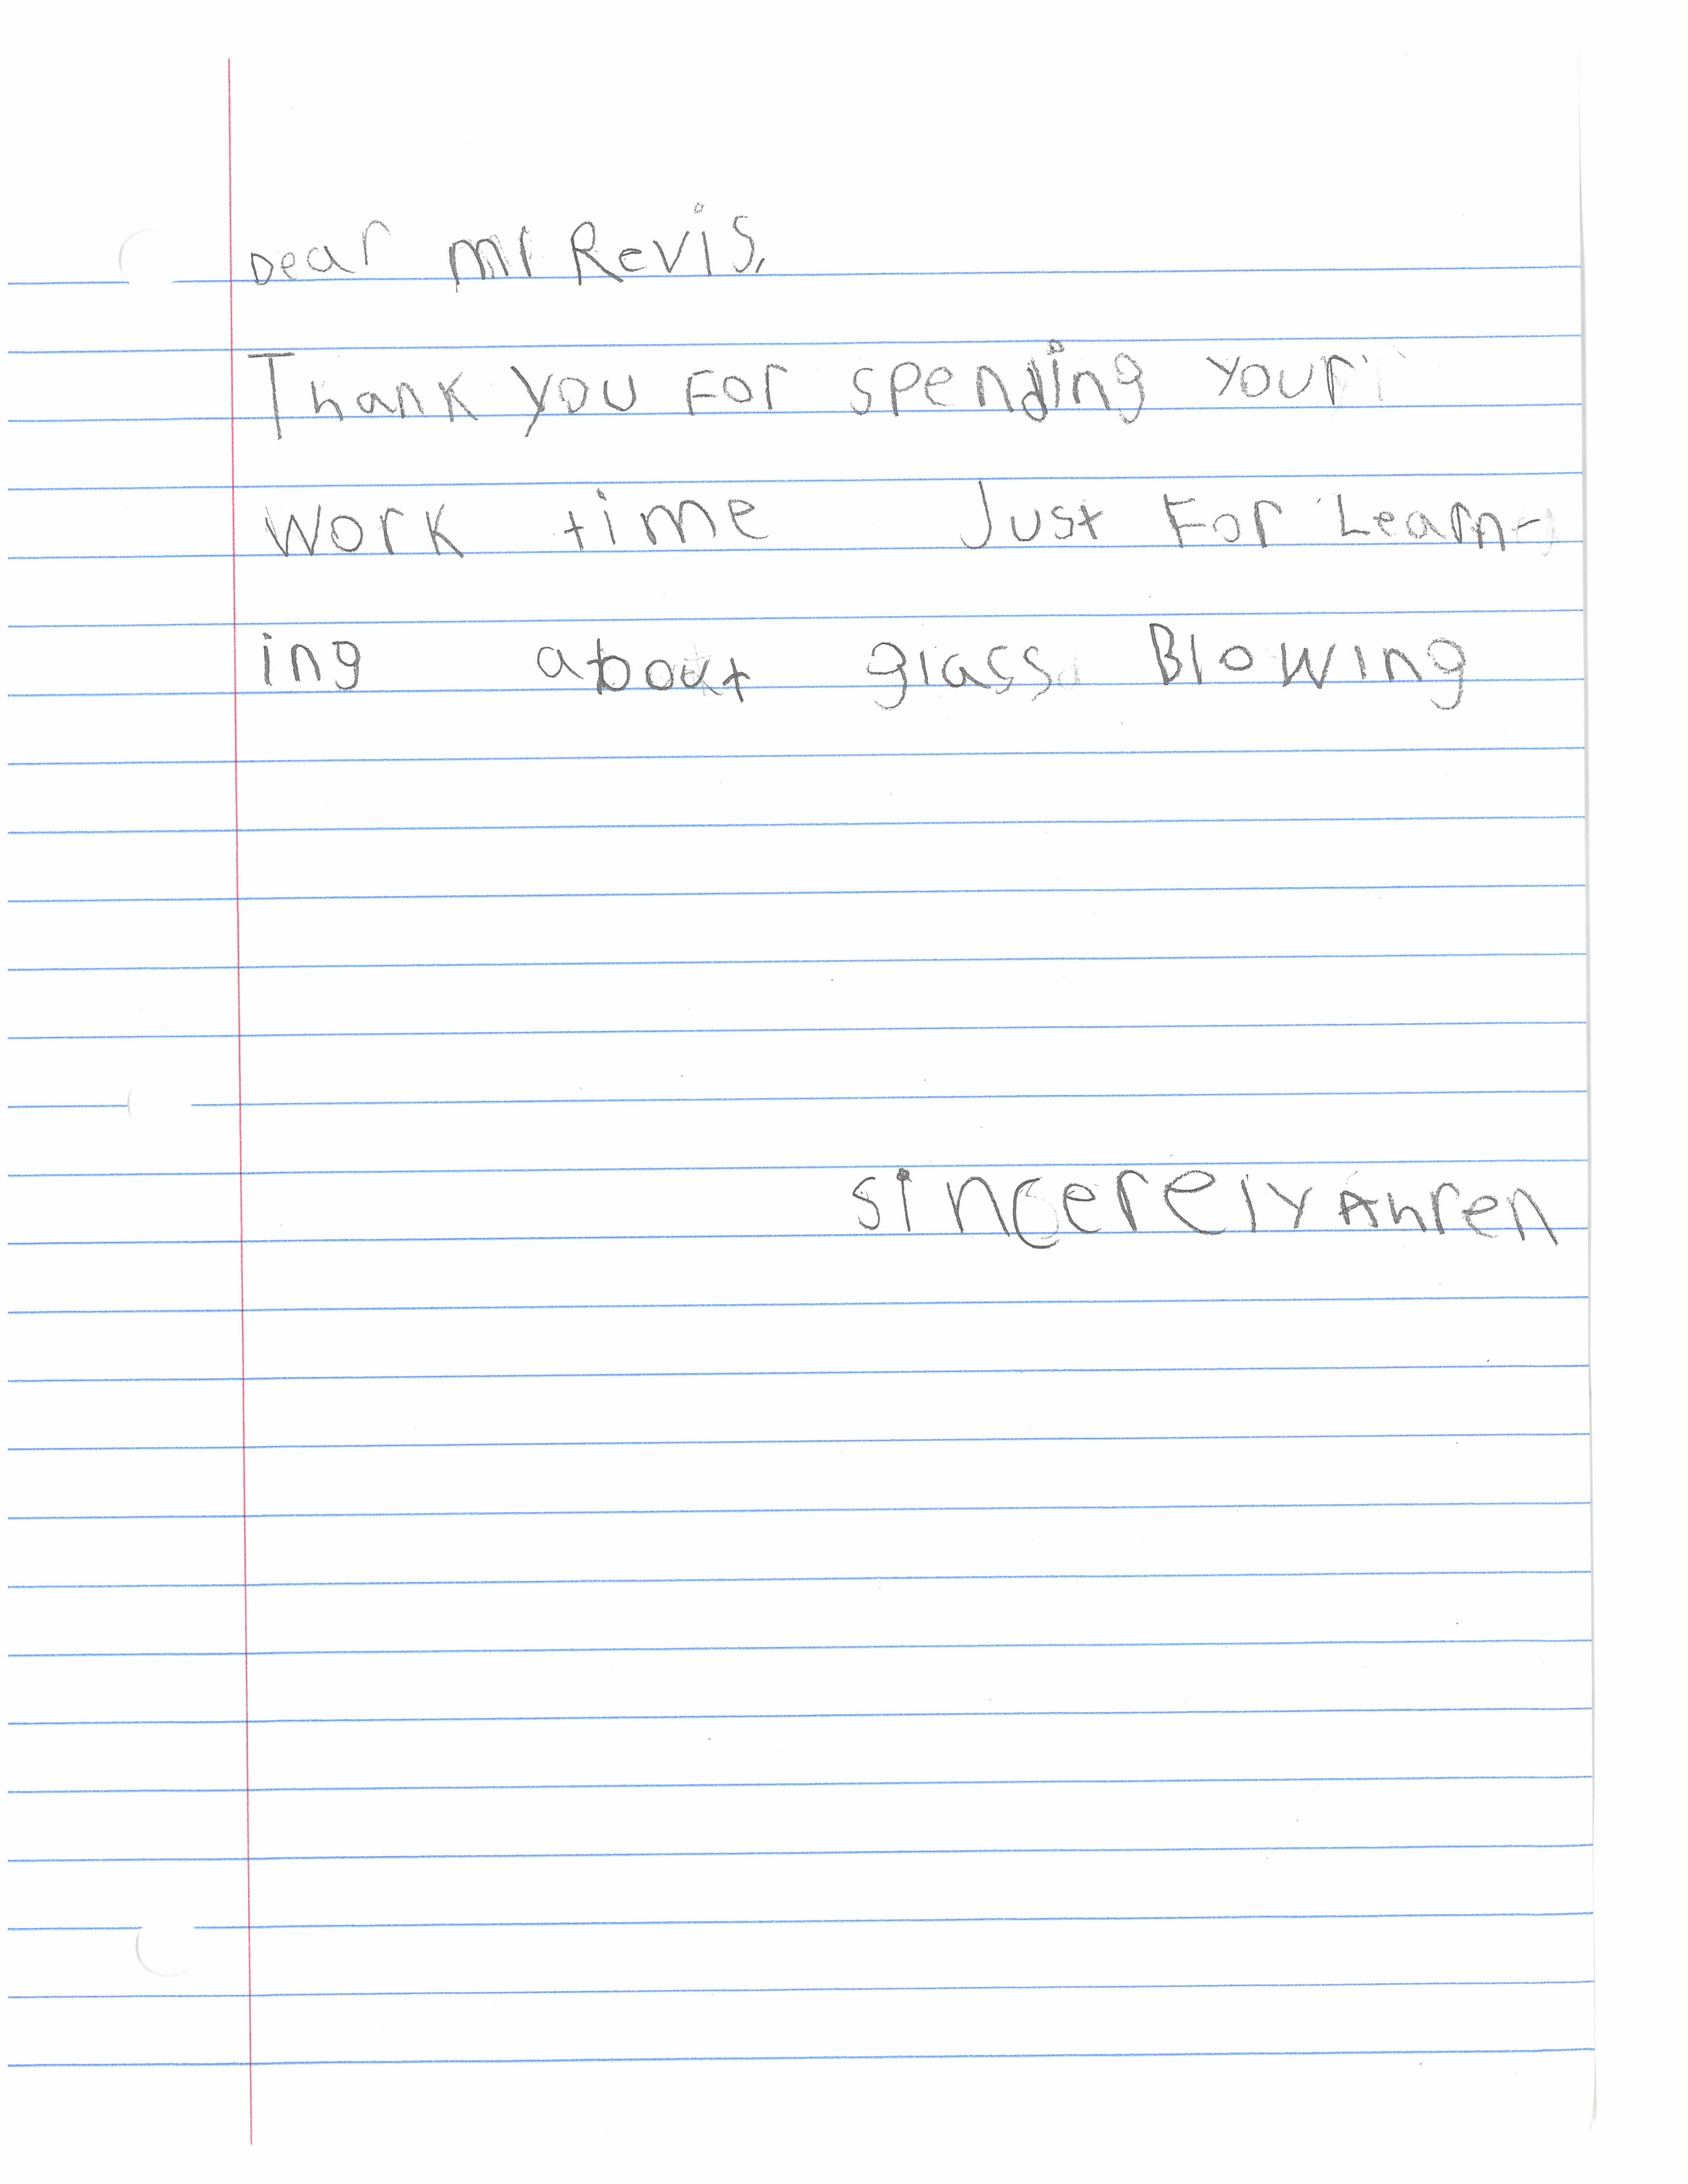 Dear mr Revis,
Thank you For spending your
work time Just For Learn-
ing about glass Blowing
sincerely Ahren